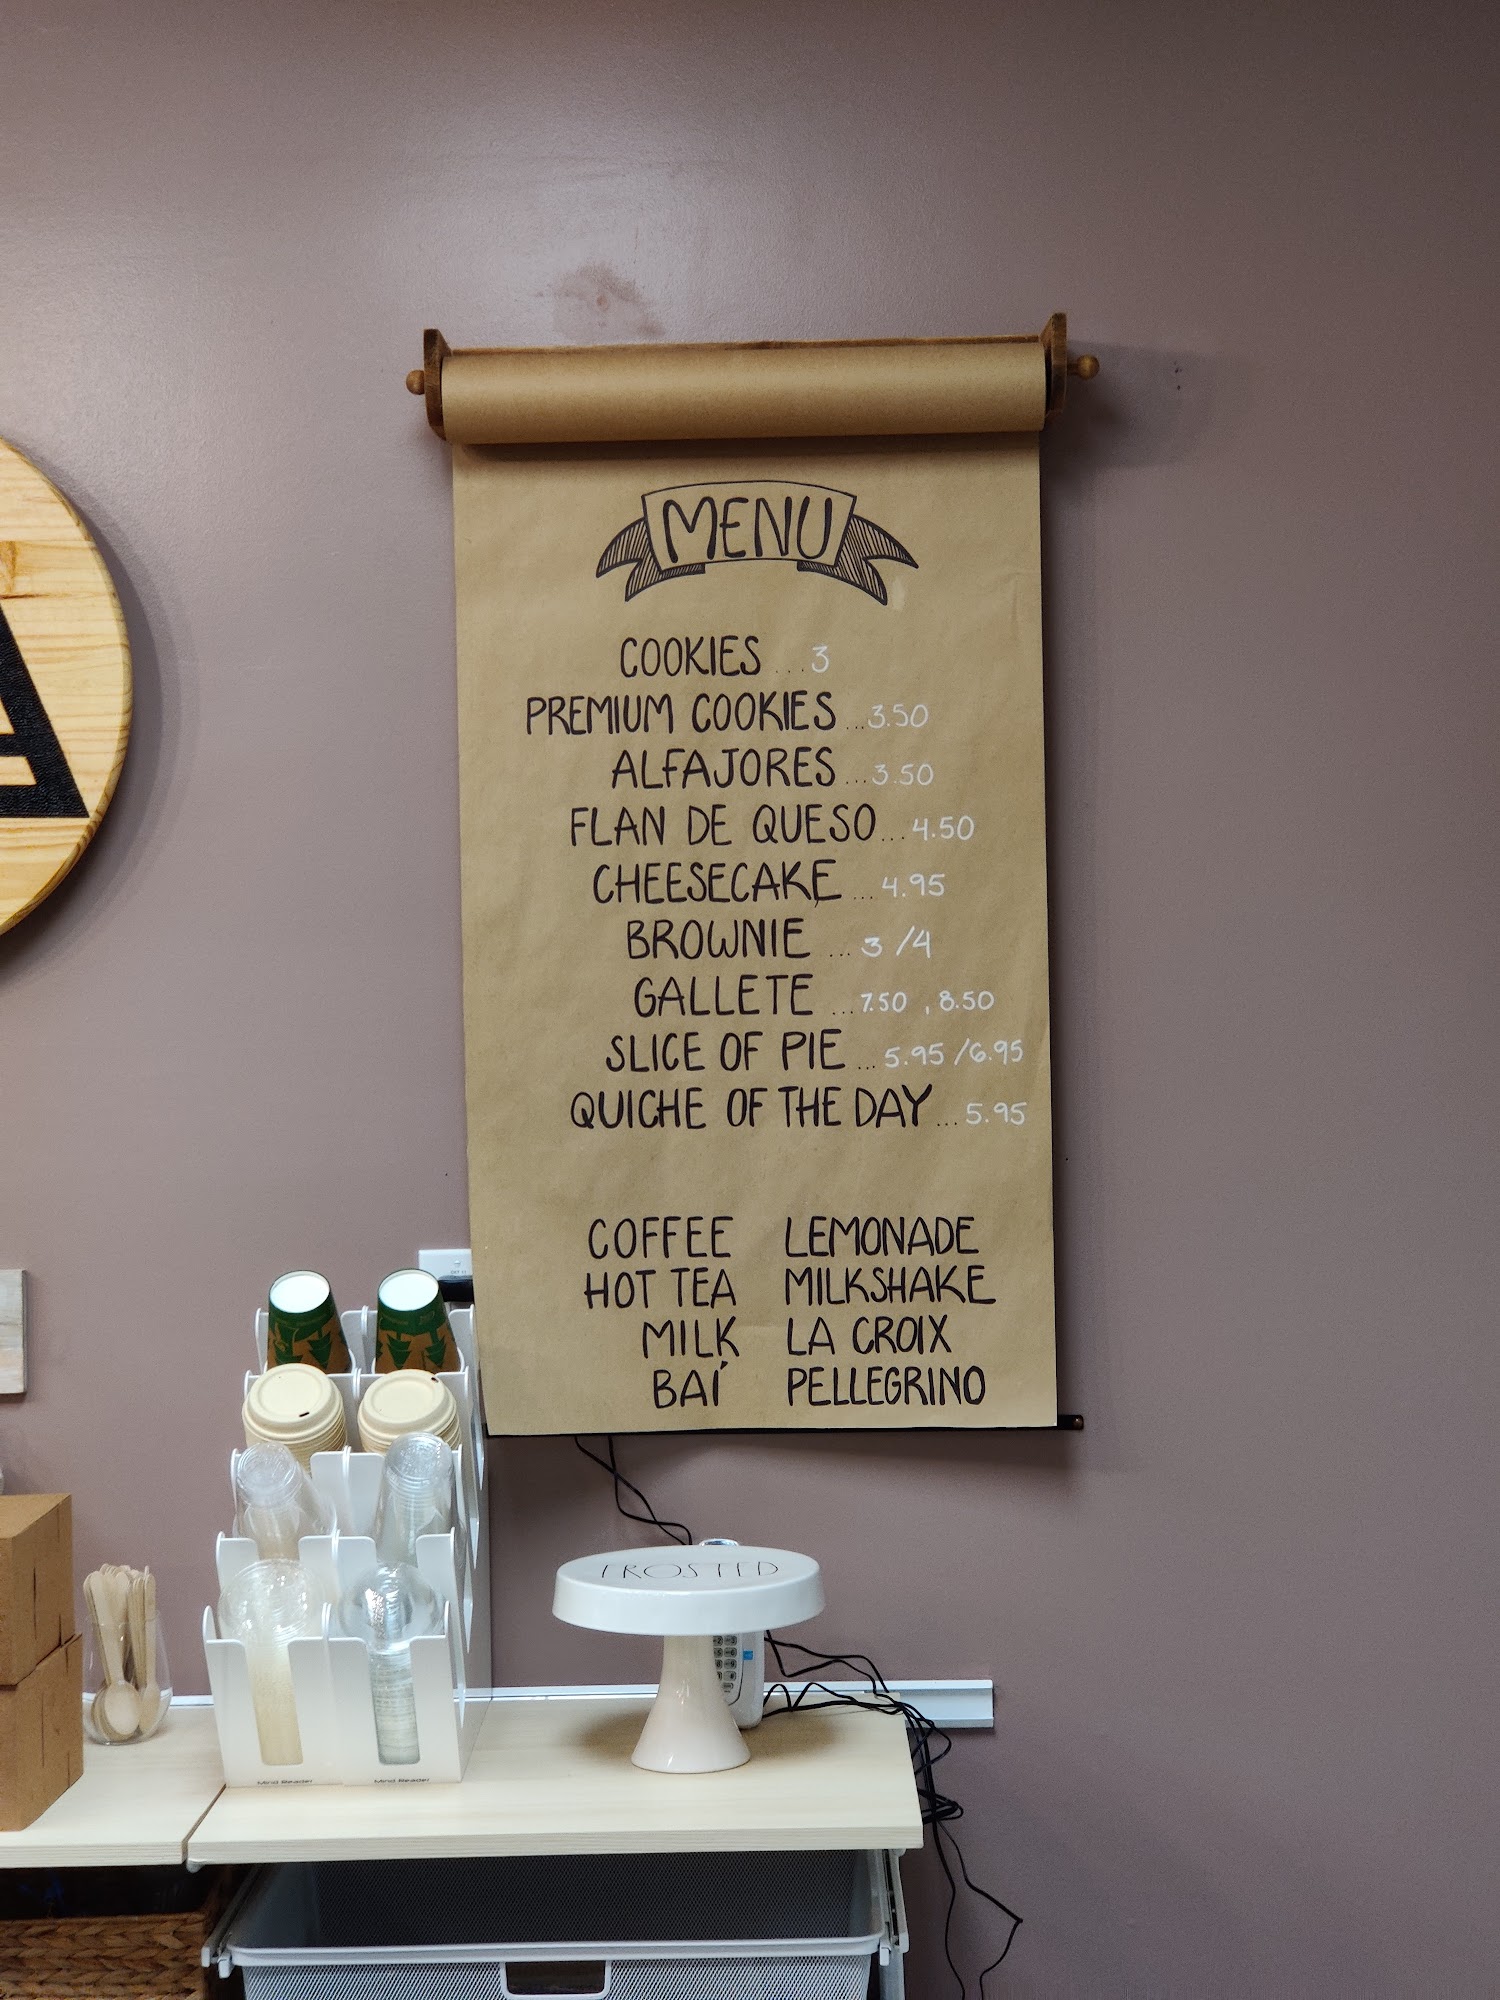 MENU
COOKIES ...3
PREMIUM COOKIES ...3.50
ALFAJORES ...3.50
FLAN DE QUESO ...4.50
CHEESECAKE ...4.95
BROWNIE ...3/4
GALLETE ...7.50, 8.50
SLICE OF PIE ...5.95/6.95
QUICHE OF THE DAY ...5.95
COFFEE LEMONADE
HOT TEA MILKSHAKE
MILK LA CROIX
BAÍ PELLEGRINO
FROSTED
Mind Reader Mind Reader